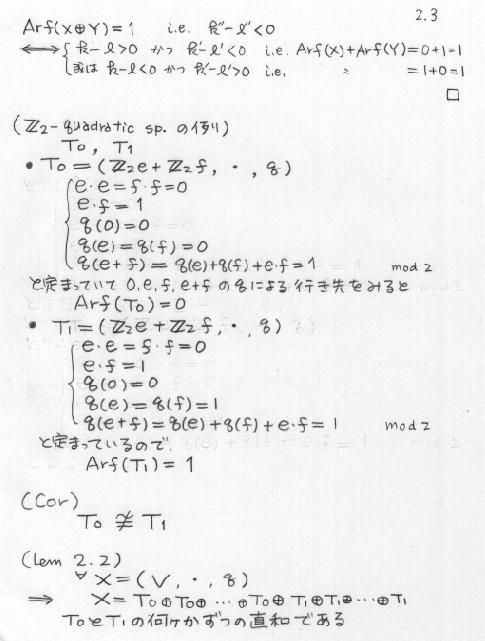 2.3
Arf(X⊕Y)=1 i.e. k''-l''<0
⟺ { k-l>0 かつ k'-l'<0 i.e. Arf(X)+Arf(Y)=0+1=1
或は k-l<0 かつ k'-l'>0 i.e. 〃 =1+0=1
□
(ℤ₂-quadratic sp. の例)
T₀, T₁
• T₀=(ℤ₂e+ℤ₂f, ・, q)
{ e・e=f・f=0
e・f=1
q(0)=0
q(e)=q(f)=0
q(e+f)=q(e)+q(f)+e・f=1 mod 2
と定まっていて 0, e, f, e+f の q による行き先をみると
Arf(T₀)=0
• T₁=(ℤ₂e+ℤ₂f, ・, q)
{ e・e=f・f=0
e・f=1
q(0)=0
q(e)=q(f)=1
q(e+f)=q(e)+q(f)+e・f=1 mod 2
と定まっているので.
Arf(T₁)=1
(Cor)
T₀ ≇ T₁
(lem 2.2)
∀X=(V, ・, q)
⟹ X=T₀⊕T₀⊕…⊕T₀⊕T₁⊕T₁⊕…⊕T₁
T₀とT₁の何ヶかずつの直和である